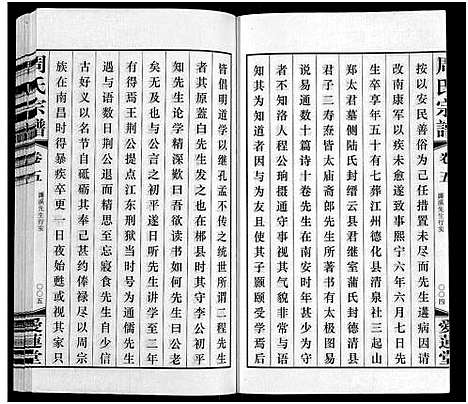 周氏宗譜
卷五
濂溪先生行实
〇〇四
愛蓮堂
按以安民善俗为己任措置未及尽而先生遘病因请
改南康军以疾未愈遂致事熙宁六年六月七日先
生卒享年五十有七葬江州德化县清泉社三起山
郑太君墓侧陆氏封缙云县君继室蒲氏封德清县
君二子寿焘皆太庙斋郎先生所著书有太极图易
说易通数十篇诗十卷先生在南安时年甚少守
不知洛人程公珦摄通守事视其气貌非常人与语
知其为知道者因与为友且使其子颐颢受学焉
周氏宗譜
卷五
濂溪先生行实
〇〇五
愛蓮堂
皆倡明道学以继孔孟不传之统世所谓二程先生
其原盖自先生发之也在郴县时其守李公初平
知先生论学精深欢曰吾欲读书如何先生曰公老
矣无及也与公言之初平遂日听先生语二年
有得焉王荆公提点江东刑狱当时号为通儒先生
遇与语数日荆公退而精思至忘寝食先生自少信
古好义以名节自砥砺其奉己甚约俸禄尽以周宗
族在南昌时得暴疾卒更一日夜始甦或视其家只